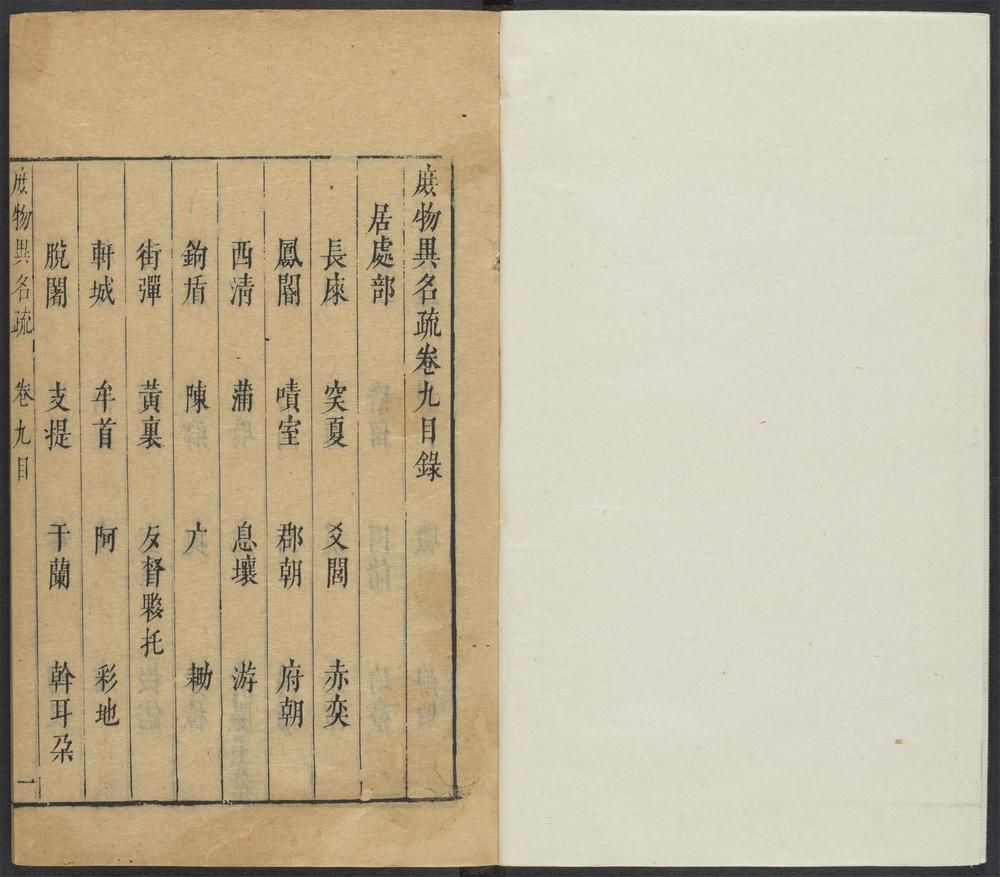 庻物異名疏卷九目錄
居處部
長庲 突夏 爻閭 赤奕
鳳閣 嘖室 郡朝 府朝
西淸 蒲 息壤 游
鉤盾 陳 亣 耡
街彈 黃裏 友督夥托
軒城 牟首 阿 彩地
脫闍 支提 干蘭 斡耳朶
庻物異名疏 卷九目 一